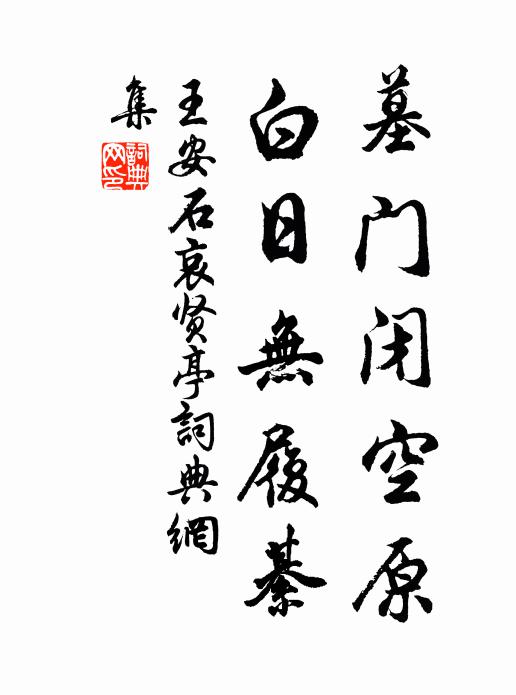 墓门闭空原
白日無履綦
王安石哀贤亭詞典網
集
詞典
网印